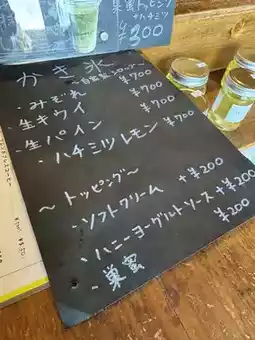 巣蜜トッピング
+ハチミツ
¥300
かき氷
〜自家製シロップ〜
・みぞれ ¥700
・生キウイ ¥700
・生パイン ¥700
・ハチミツレモン ¥700
〜トッピング〜
・ソフトクリーム +¥200
・ハニーヨーグルトソース +¥200
・巣蜜 ¥200